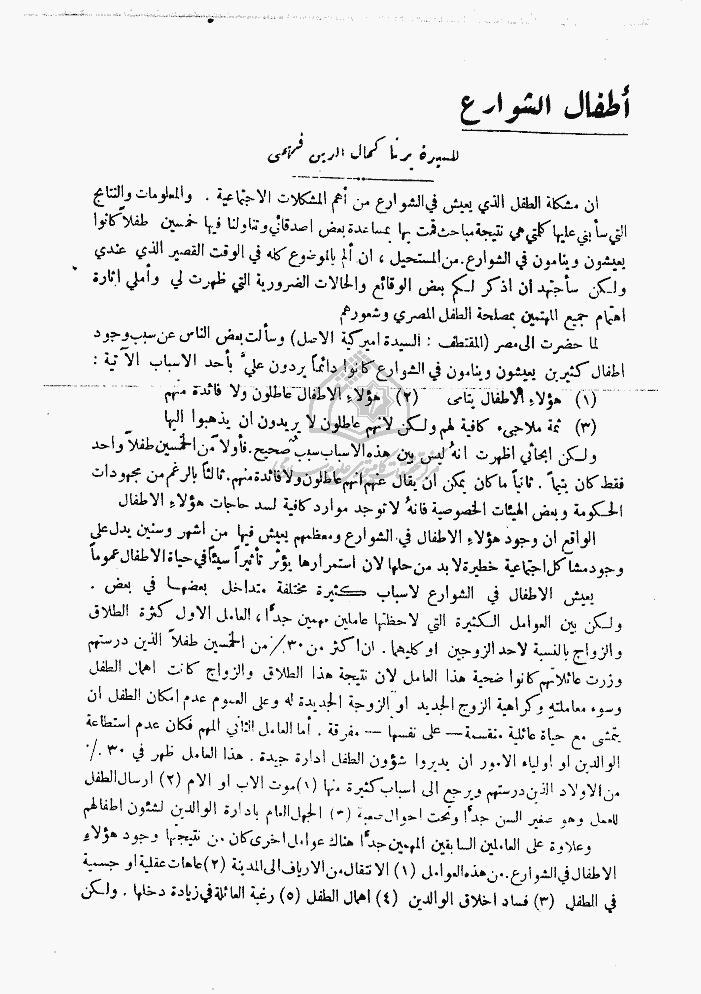 أطفال الشوارع
للسيدة برنا كمال الدين فهمي
ان مشكلة الطفل الذي يعيش في الشوارع من أهم المشكلات الاجتماعية . والمعلومات والنتائج
التي سأبني عليها كلتي هي نتيجة مباحث قمت بها بمساعدة بعض اصدقائي وتناولنا فيها خمسين طفلاً كانوا
يعيشون وينامون في الشوارع . من المستحيل ، ان ألم بالموضوع كله في الوقت القصير الذي عندي
ولكن سأجتهد ان اذكر لكم بعض الوقائع والحالات الضرورية التي ظهرت لي وأملي اثارة
اهتمام جميع المهتمين بمصلحة الطفل المصري وشعورهم
لما حضرت الى مصر (المقتطف : السيدة اميركية الاصل) وسألت بعض الناس عن سبب وجود
اطفال كثيرين يعيشون وينامون في الشوارع كانوا دائماً يردون عليَّ بأحد الاسباب الآتية :
(١) هؤلاءِ الاطفال يتامى (٢) هؤلاءِ الاطفال عاطلون ولا فائدة منهم
(٣) ثمة ملاجىء كافية لهم ولكن لانهم عاطلون لا يريدون ان يذهبوا اليها
ولكن ابحاثي اظهرت انهُ ليس بين هذه الاسباب سبب صحيح . فأولاً من الخمسين طفلاً واحد
فقط كان يتيماً . ثانياً ما كان يمكن أن يقال عنهم انهم عاطلون ولا فائدة منهم . ثالثاً بالرغم من مجهودات
الحكومة و بعض الهيئات الخصوصية فانهُ لا توجد موارد كافية لسد حاجات هؤلاءِ الاطفال
الواقع ان وجود هؤلاءِ الاطفال في الشوارع ومعظمهم يعيش فيها من أشهر وسنين يدل على
وجود مشاكل اجتماعية خطيرة لا بد من حلها لان استمرارها يؤثر تأثيراً سيئاً في حياة الاطفال عموماً
يعيش الاطفال في الشوارع لاسباب كثيرة مختلفة متداخل بعضها في بعض .
ولكن بين العوامل الكثيرة التي لاحظتها عاملين مهمين جدًّا ، العامل الاول كثرة الطلاق
والزواج بالنسبة لاحد الزوجين او كليهما . ان اكثر من ٣٠٪ من الخمسين طفلاً الذين درستهم
وزرت عائلاتهم كانوا ضحية هذا العامل لان نتيجة هذا الطلاق والزواج كانت اهمال الطفل
وسوء معاملته وكراهية الزوج الجديد او الزوجة الجديدة له وعلى العموم عدم امكان الطفل ان
يتمشى مع حياة عائلية منقسمة — على نفسها — مفرقة . أما العامل الثاني المهم فكان عدم استطاعة
الوالدين او اولياء الامور ان يديروا شؤون الطفل ادارة جيدة . هذا العامل ظهر في ٣٠٪
من الاولاد الذين درستهم ويرجع الى اسباب كثيرة منها (١) موت الاب او الام (٢) ارسال الطفل
للعمل وهو صغير السن جدًّا وتحت احوال صعبة (٣) الجهل العام بادارة الوالدين لشئون اطفالهم
وعلاوة على العاملين السابقين المهمين جدًّا هناك عوامل اخرى كان من نتيجتها وجود هؤلاءِ
الاطفال في الشوارع . من هذه العوامل (١) الانتقال من الارياف الى المدينة (٢) عاهات عقلية او جسمية
في الطفل (٣) فساد اخلاق الوالدين (٤) اهمال الطفل (٥) رغبة العائلة في زيادة دخلها . ولكن